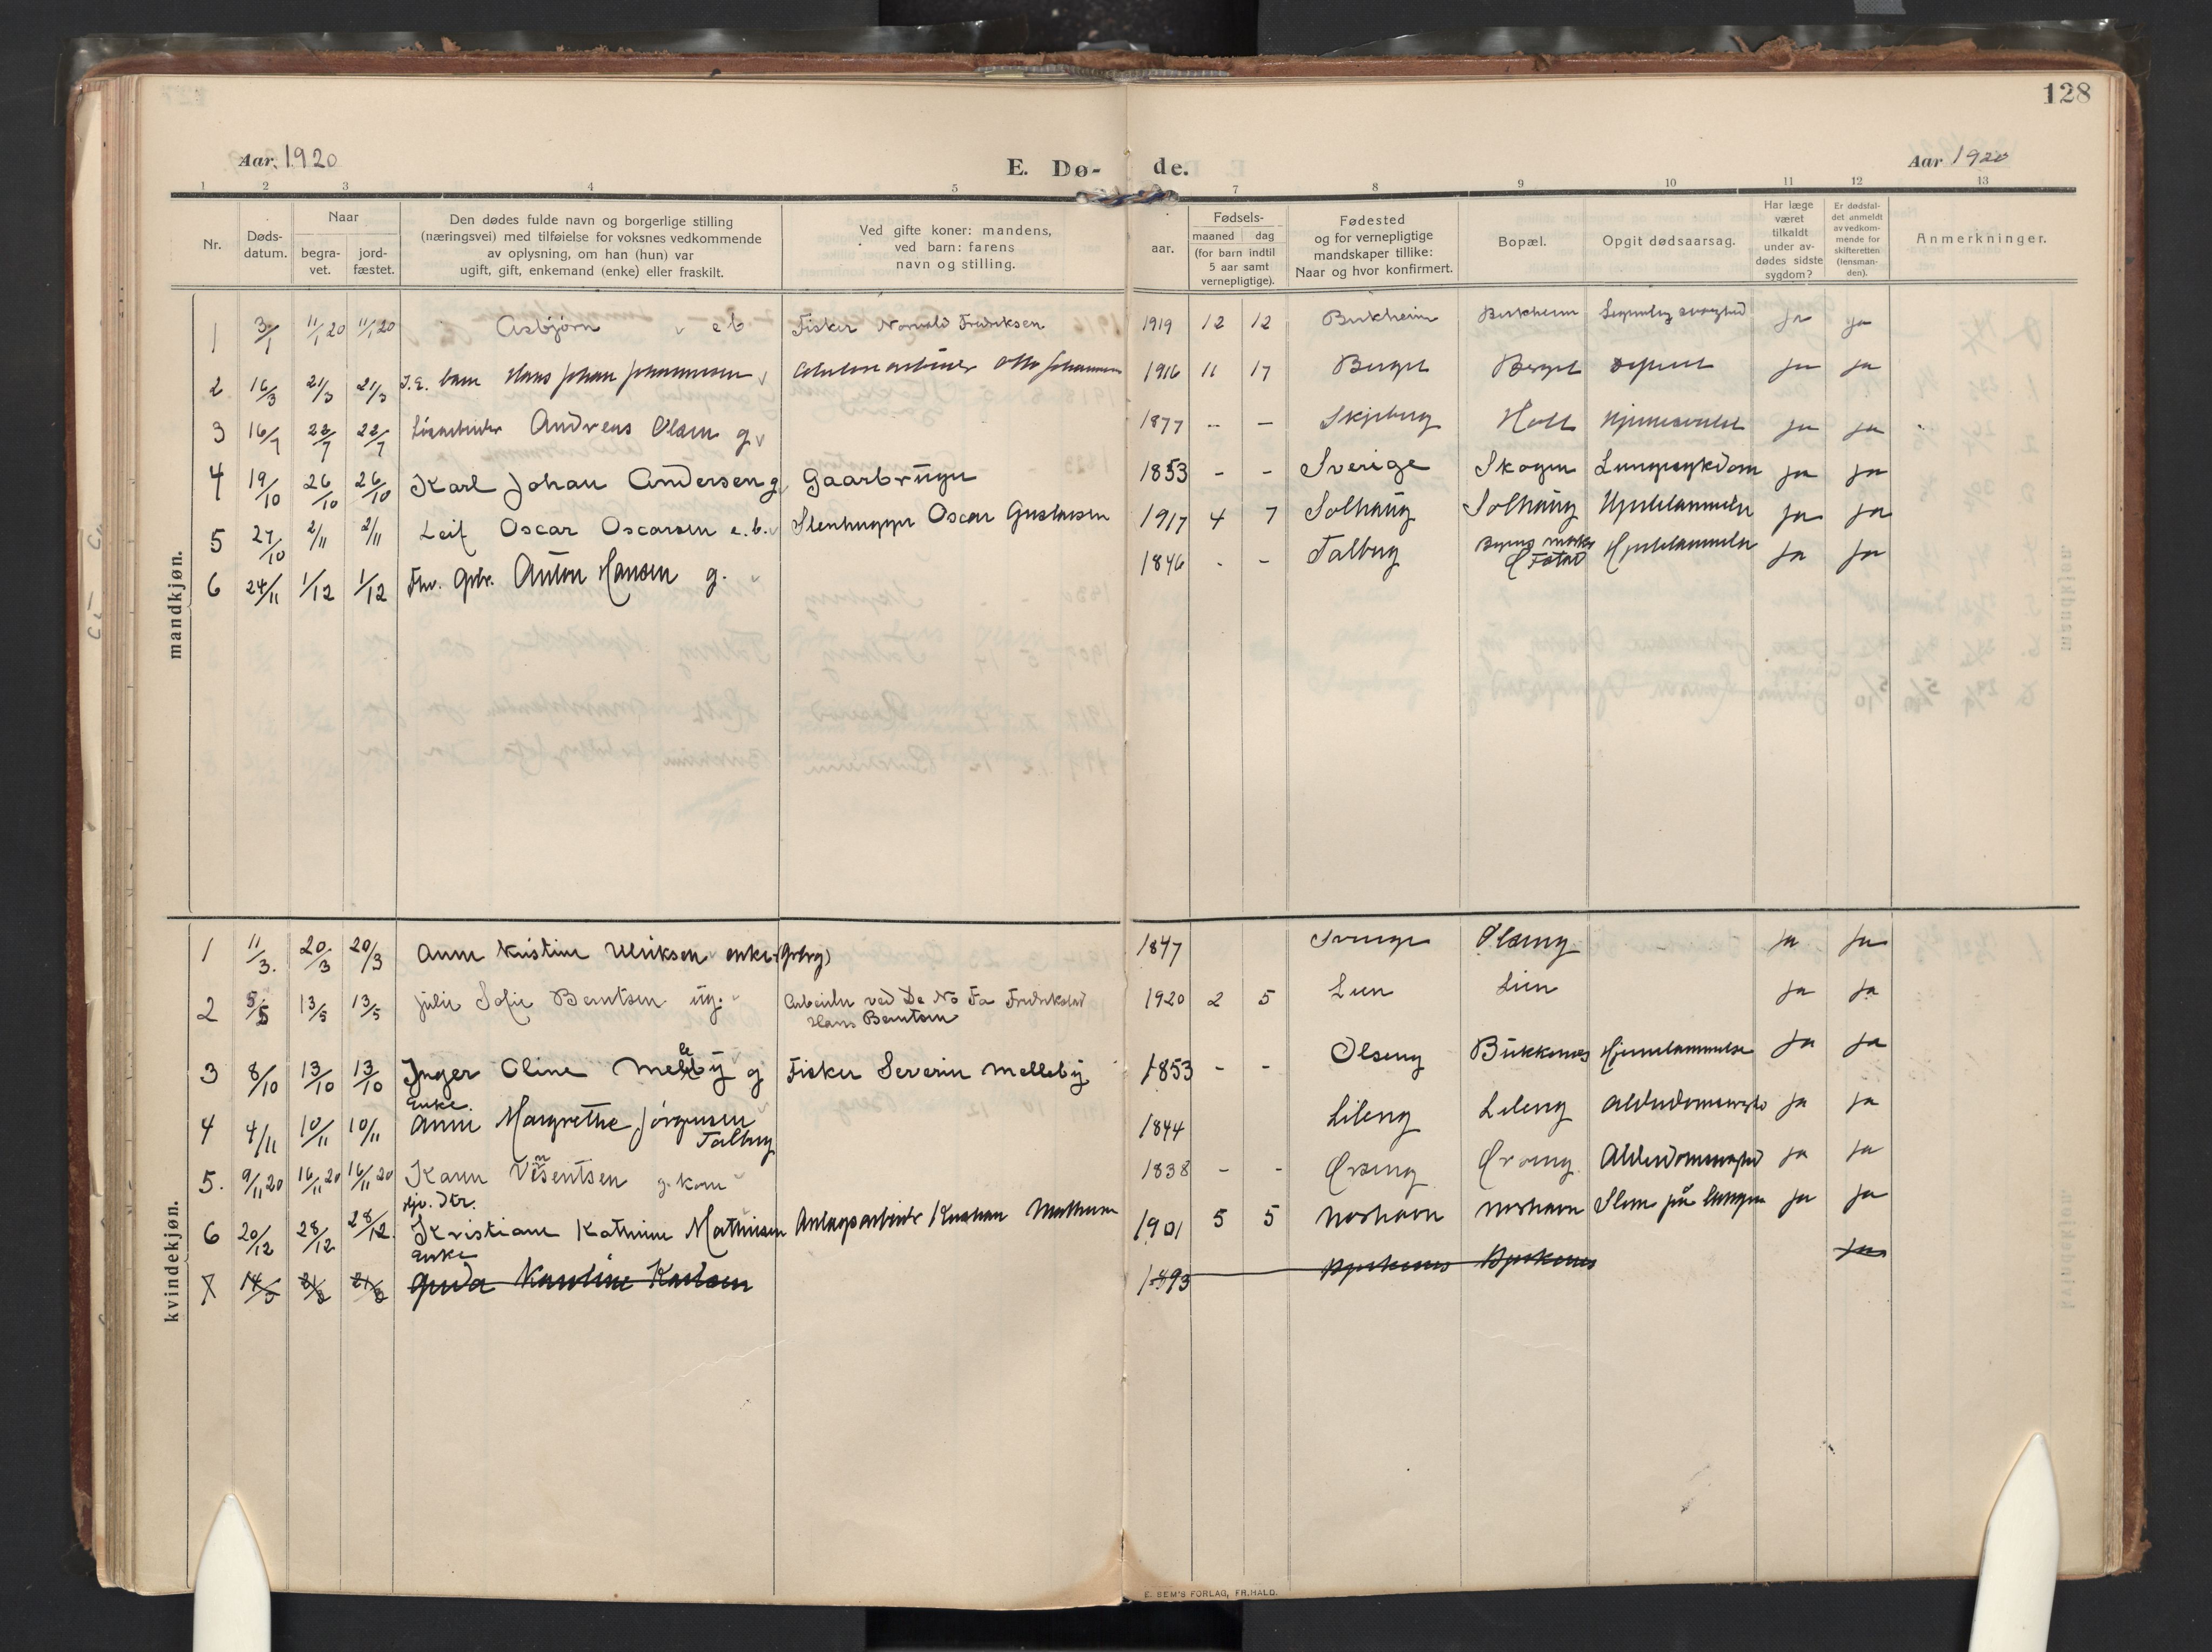 128
Aar 1920 E. Dø- de. Aar 1920
1 2 3 4 5 7 8 9 10 11 12 13
Nr. Døds-datum. Naar begra-vet. jord-fæstet. Den dødes fulde navn og borgerlige stilling (næringsvei) med tilføielse for voksnes vedkommende av oplysning, om han (hun) var ugift, gift, enkemand (enke) eller fraskilt. Ved gifte koner: mandens, ved barn: farens navn og stilling. aar. Fødsels- maaned dag (for barn indtil 5 aar samt vernepligtige). Fødested og for vernepligtige mandskaper tillike: Naar og hvor konfirmert. Bopæl. Opgit dødsaarsag. Har læge været tilkaldt under av-dødes sidste sygdom? Er dødsfal-det anmeldt av vedkom-mende for skifteretten (lensman-den). Anmerkninger.
mandkjøn.
1 3/1 11/1 20 11/1 20 Asbjørn e b Fisker Norvald Fredriksen 1919 12 12 Birkheim Birkheim ja ja
2 16/3 21/3 21/3 Hans Johan Johannessen Otto Johannessen 1916 11 17 Berget Berget ja ja
3 16/7 22/7 22/7 Andreas Olsen g 1877 - - Skjeberg Holt ja ja
4 19/10 26/10 26/10 Karl Johan Andersen g Gaarbruger 1853 - - Sverige Skogen Lungesykdom ja ja
5 27/10 2/11 2/11 Leif Oscar Oscarsen e.b. Stenhugger Oscar Gustavsen 1917 4 7 Solhaug Solhaug ja ja
6 24/11 1/12 1/12 Fhv. Grbr. Anton Hansen g. 1846 - - Talberg ja ja
kvindekjøn.
1 11/3. 20/3 20/3 Anne Kristine Ulriksen enke (Grbrg) 1847 Sverige Olseng ja ja
2 5/5 13/5 13/5 Julie Sofie Berntsen ug. Arbeider ved De No Fa Fredrikstad
Hans Berntsen 1920 2 5 Lien Lien ja ja
3 8/10 13/10 13/10 Inger Oline Melleby g Fisker Severin Melleby 1853 - - Olseng ja ja
4 4/11 10/11 10/11 Enke
Anne Margrethe Jørgensen
Talberg 1844 Lileng Lileng ja ja
5. 9/11 20 16/11 20 16/11 20 Karen g. kone 1838 - - ja ja
6 20/12 28/12 28/12. Kristiane Katrine Mathisen Anlagsarbeider Kristian Mathisen 1901 5 5 Norhavn Norhavn Slem på lungen ja ja
7 14/5 21/5 21/5 Enke
Karoline Karlsen 1893 ja
E. SEM'S FORLAG, FR.HALD.